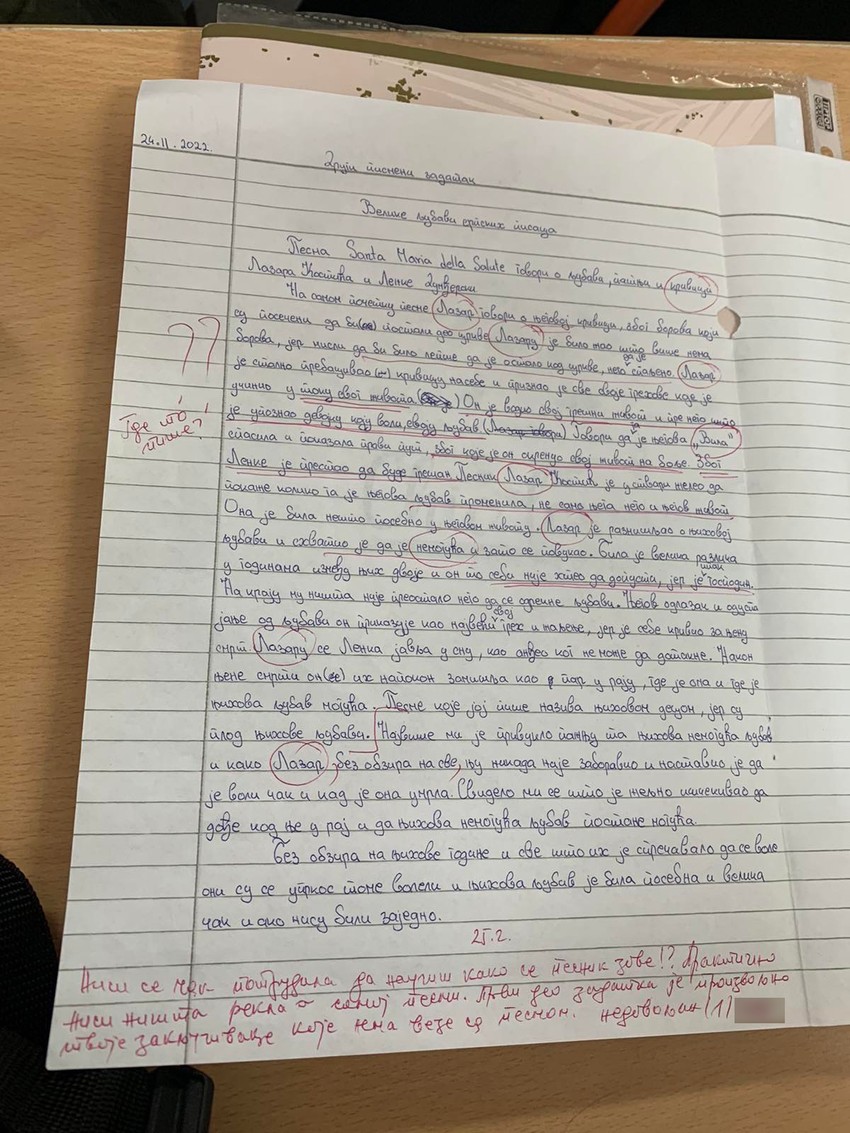 24.11.2022.
Други писмени задатак
Велике љубави српских писаца
Песма Santa Maria della Salute говори о љубави, патњи и кривици
Лазара Костића и Ленке Дунђерски
На самом почетку песме Лазар говори о његовој кривици, због борова који
су посечени да би (се) постали део цркве. Лазару је било жао што више нема
борова, јер мисли да би било лепше да је остало код цркве, него спаљено. Лазар
да је
је стално пребацивао кривицу на себе и признао је све своје грехове које је
учинио у току свог живота. Он је водио свој грешни живот и пре него што
??
је упознао девојку коју воли, своју љубав (Лазар говори) Говори да је његова „Вила"
Где то
пише?
спасила и показала прави пут, због које је он скренуо свој живот на боље. Због
Ленке је престао да буде грешан Песник Лазар Костић је уствари желео да
покаже колико га је његова љубав променила, не само њега него и његов живот
Она је била нешто посебно у његовом животу. Лазар је размишљао о њиховој
љубави и схватио је да је немогућа и зато се повукао. Била је велика разлика
у годинама између њих двоје и он то себи није хтео да допусти, јер је господин.
На крају му ништа није преостало него да се одрекне љубави. Његов одлазак и одуста
свој
јање од љубави он приказује као највећи грех и кајање, јер је себе кривио за њену
смрт. Лазару се Ленка јавља у сну, као анђео кој не може да дотакне. Након
њене смрти он (се) их напокон замишља као пар у рају, где је она и где је
њихова љубав могућа. Песме које јој пише назива њиховом децом, јер су
плод њихове љубави. Највише ми је привукло пажњу та њихова немогућа љубав
и како Лазар, без обзира на све, њу никада није заборавио и наставио је да
је воли чак и кад је она умрла. Свидело ми се што је жељно ишчекивао да
дође код ње у рај и да њихова немогућа љубав постане могућа.
Без обзира на њихове године и све што их је спречавало да се воле
они су се упркос томе волели и њихова љубав је била посебна и велика
чак и ако нису били заједно.
25. г.
Ниси се чак потрудила да научиш како се песник зове!? Практично
ниси ништа рекла о самој песми. Први део задатка је произвољно
твоје закључивање које нема везе са песмом. недовољан (1)